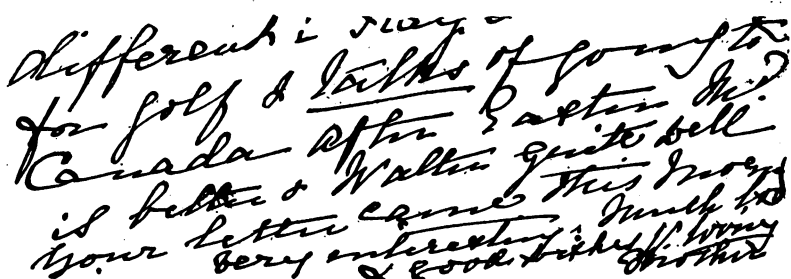 different i stay &
for golf & talks of going to
Canada after Easter Mrs.
is better & Walter quite well
your letter came this morng
very interesting, much love
& good wishes yr loving
Mother